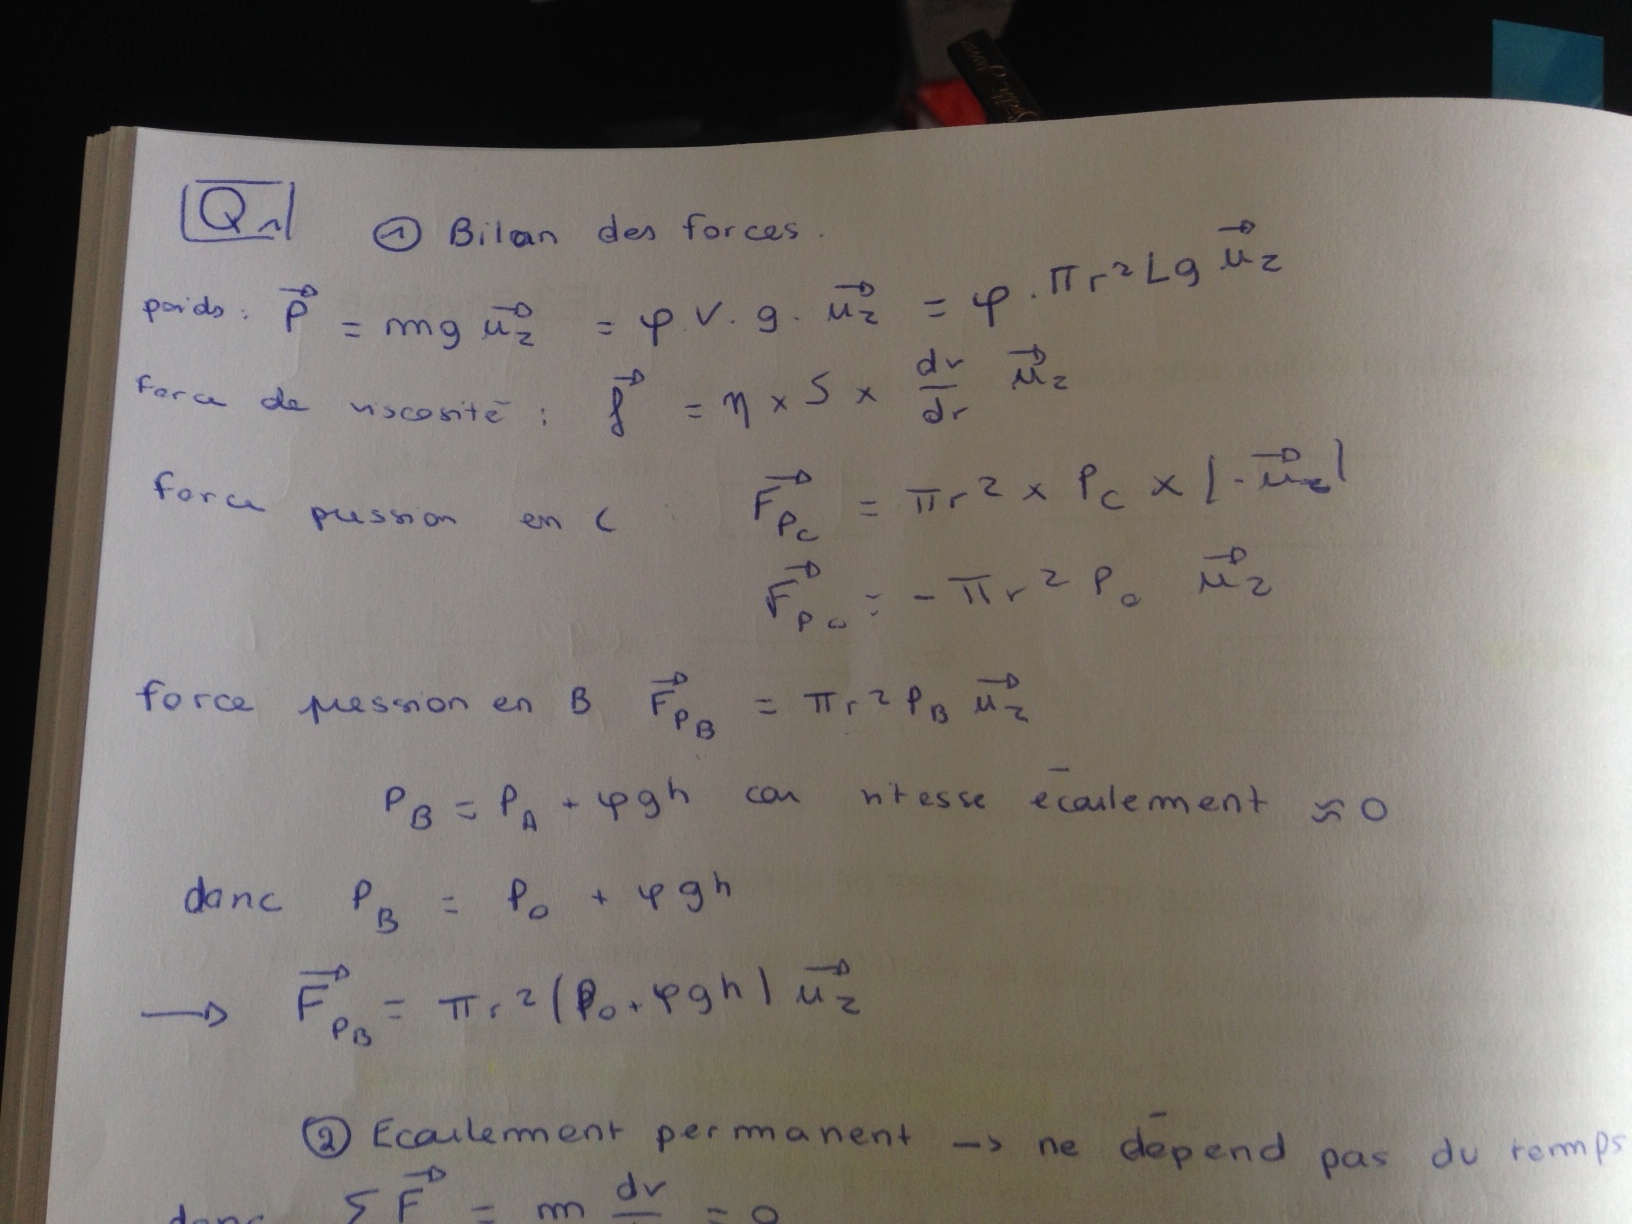 Q1 ① Bilan des forces.
poids : P⃗ = mg u⃗z = φ.V.g. u⃗z = φ.πr²Lg u⃗z
force de viscosité : f⃗ = η × S × dv/dr u⃗z
force pression en C : F⃗PC = πr² × PC × (-u⃗z)
F⃗PC = -πr² P0 u⃗z
force pression en B F⃗PB = πr² PB u⃗z
PB = PA + φgh car vitesse écoulement ≈ 0
donc PB = P0 + φgh
→ F⃗PB = πr² (P0 + φgh) u⃗z
② Ecoulement permanent → ne dépend pas du temps
donc Σ F⃗ = m dv/ = 0